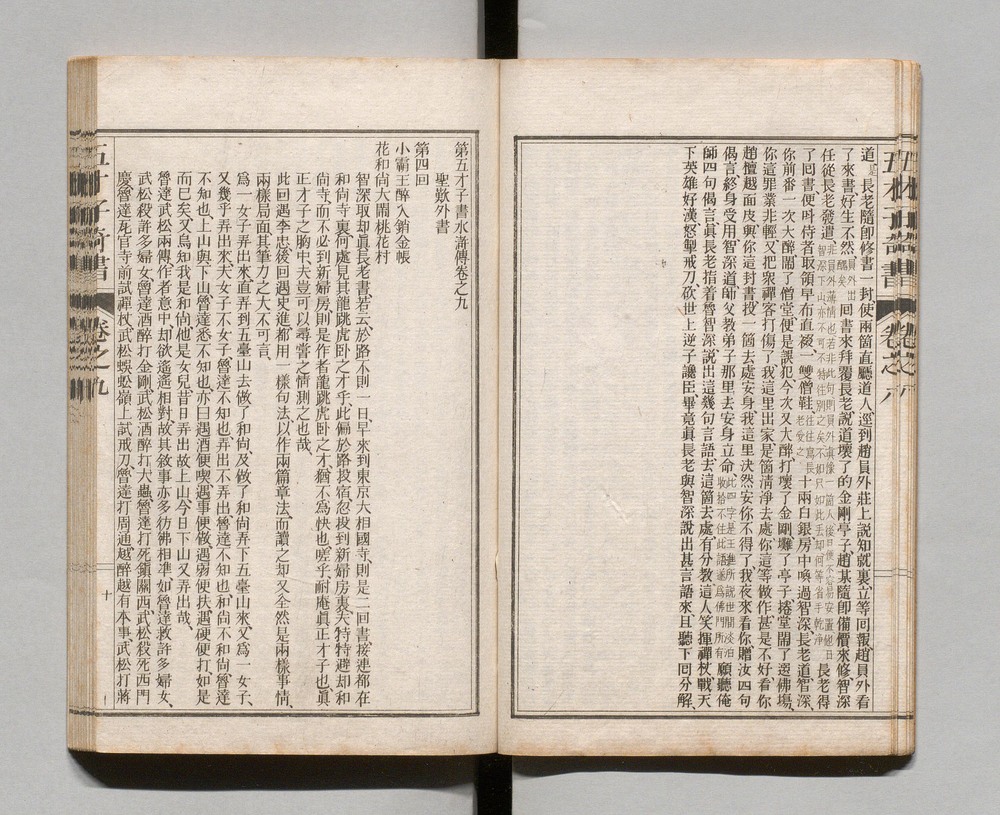 道是長老隨卽修書一封使兩箇直廳道人逕到趙員外莊上說知就裏立等囘報趙員外看
了來書好生不然員外出醜矣囘書來拜覆長老說道壞了的金剛亭子趙某隨卽備價來修智深
任從長老發遣
長老得
了囘書便呌侍者取領皁布直裰一雙僧鞋十兩白銀房中喚過智深長老道智深
你前番一次大醉鬧了僧堂便是誤犯今次又大醉打壞了金剛攧了亭子捲堂鬧了選佛塲
你這罪業非輕又把衆禪客打傷了我這里出家是箇淸淨去處你這等做作甚是不好看你
趙檀越面皮與你這封書投一箇去處安身我這里決然安你不得了我夜來看你贈汝四句
偈言終身受用智深道師父敎弟子那里去安身立命願聽俺
師四句偈言眞長老指着魯智深說出這幾句言語去這箇去處有分敎這人笑揮禪杖戰天
下英雄好漢怒掣戒刀砍世上逆子讒臣畢竟眞長老與智深說出甚言語來且聽下囘分解
五才子奇書
卷之八
第五才子書水滸傳卷之九
聖歎外書
第四回
小霸王醉入銷金帳
花和尙大鬧桃花村
智深取却眞長老書若云於路不則一日早來到東京大相國寺則是二回書接連都在
和尙寺裏何處見其龍跳虎臥之才乎此偏於路投宿忽投到新婦房裏夫特特避却和
尙寺而不必到新婦房則是作者龍跳虎臥之才猶不爲快也嗟乎耐庵眞正才子也眞
正才子之胸中夫豈可以尋嘗之情測之也哉
此回遇李忠後回遇史進都用一樣句法以作兩篇章法而讀之却又全然是兩樣事情
兩樣局面其筆力之大不可言
爲一女子弄出來直弄到五臺山去做了和尙及做了和尙弄下五臺山來又爲一女子
又幾乎弄出來夫女子不女子魯達不知也弄出不弄出魯達不知也和尙不和尙魯達
不知也上山與下山魯達悉不知也亦曰遇酒便喫遇事便做遇弱便扶遇硬便打如是
而已矣又烏知我是和尙他是女兒昔日弄出故上山今日下山又弄出哉
魯達武松兩傳作者意中却欲遙遙相對故其敘事亦多彷彿相準如魯達救許多婦女
武松殺許多婦女魯達酒醉打金剛武松酒醉打大蟲魯達打死鎭關西武松殺死西門
慶魯達瓦官寺前試禪杖武松蜈蚣嶺上試戒刀魯達打周通越醉越有本事武松打蔣
五才子奇書
卷之九
十